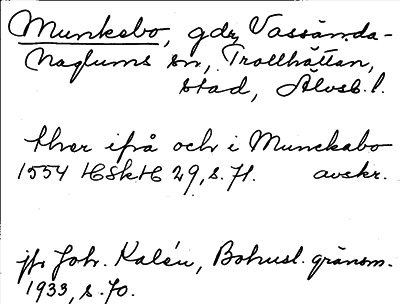 Munkebo, gdr, Vassända-
Naglums sn, Trollhättan,
stad, Älvsb. l.
ther ifrå och i Munckabo
1554 HSkH 29, s. 71. avskr.
jfr Joh. Kalén, Bohusl. gränsm.
1933, s. 70.